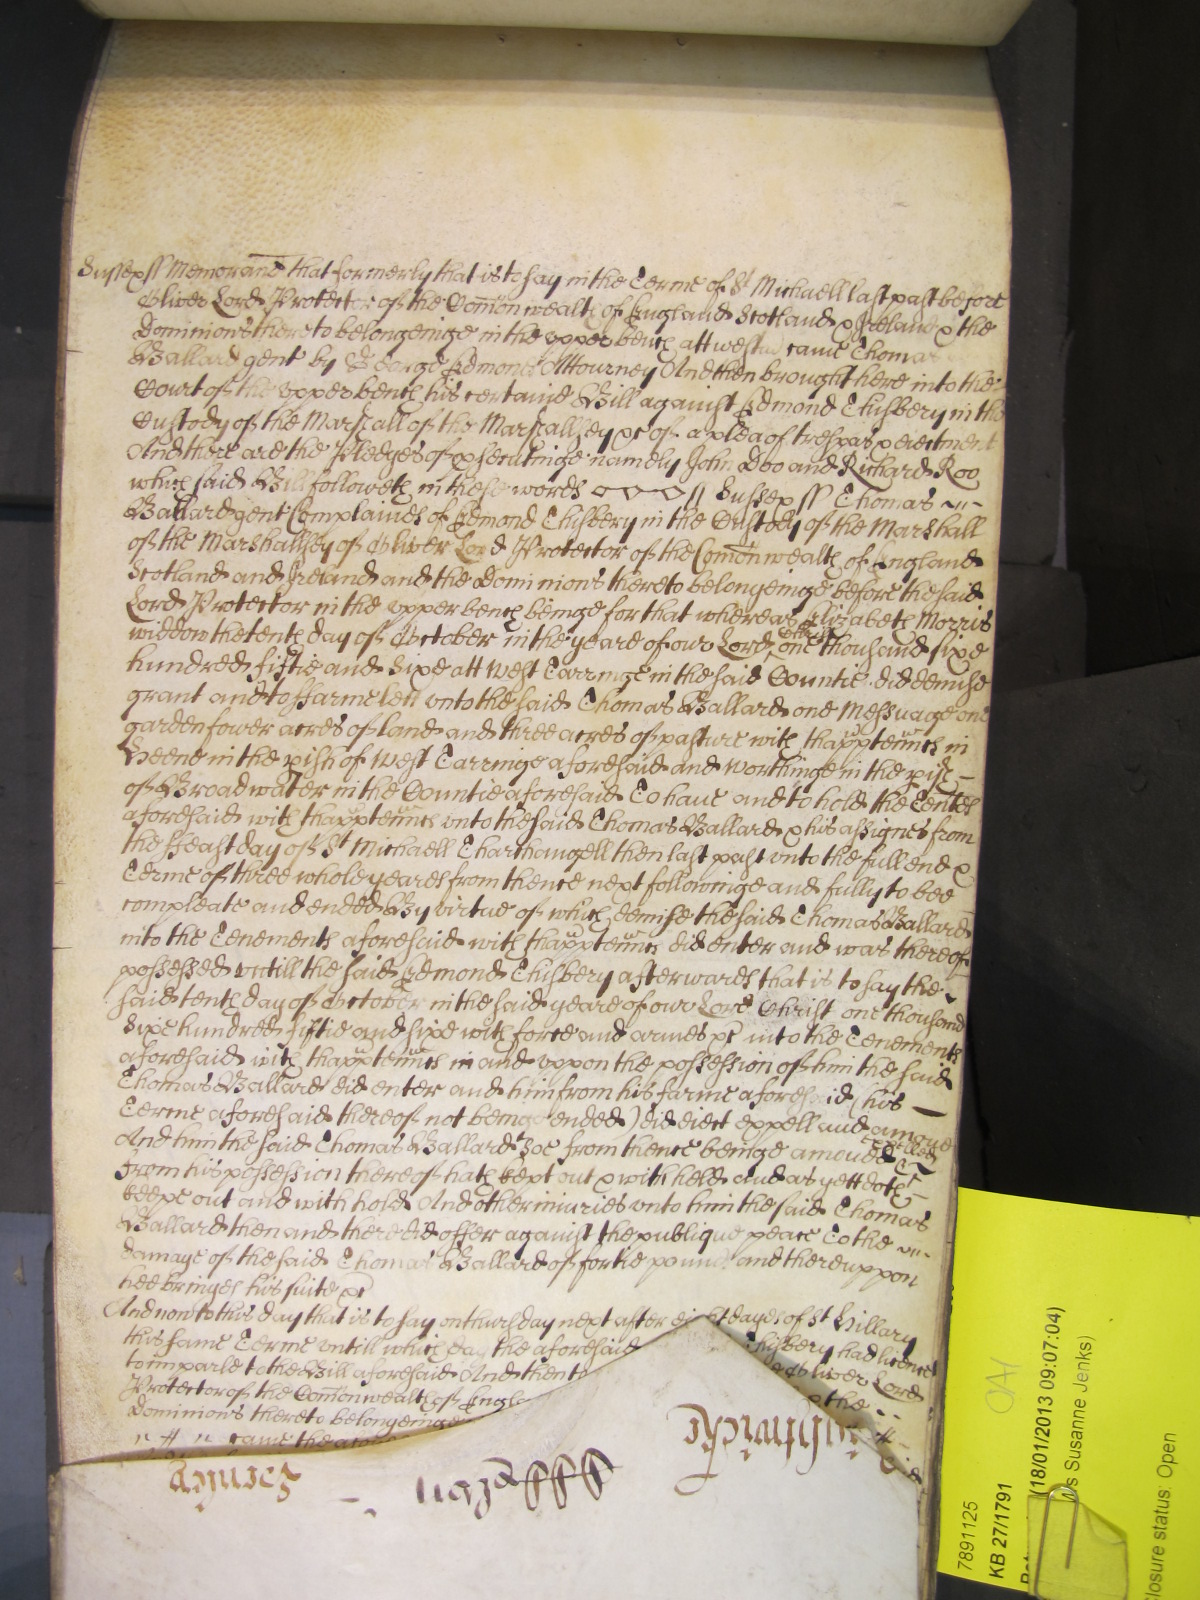 Sussex ss Memorand that formerly that is to say in the Terme of St Michaell last past before
Oliver Lord Protector of the Comonwealth of England Scotland & Ireland & the
Dominions thereto belongeinge in the upper bench att westm came Thomas
Ballard gent by George Edmonds Attourney And then brought here into the
Court of the upper bench his certaine Bill against Edmond Chisbery in the
Custody of the Marshall of the Marshallsey &c of a plea of trespas & eiectment
And there are the Pledges of psecutinge namely John Doo and Richard Roo
which said Bill followeth in these words ss Sussex ss Thomas
Ballard gent Complaines of Edmond Chisbery in the Custody of the Marshall
of the Marshallsey of Oliver Lord Protector of the Comonwealth of England
Scotland and Ireland and the Dominions thereto belongeinge before the said
Lord Protector in the upper bench beinge for that whereas Elizabeth Morris
widdow the tenth day of October in the yeare of our Lord Christ one thousand sixe
hundred fiftie and sixe att West Tarringe in the said Countie did demise
grant and to ffarme lett unto the said Thomas Ballard one Messuage one
garden fower acres of land and three acres of pasture with thapptennces in
Heene in the pish of West Tarringe aforesaid and Worthinge in the pish
of Broadwater in the Countie aforesaid To have and to hold the Tentes
aforesaid with thapptennces unto the said Thomas Ballard & his assignes from
the ffeast day of St Michaell Tharchangell then last past unto the full end &
Terme of three whole yeares from thence next followinge and fully to bee
compleate and ended By virtue of which demise the said Thomas Ballard
into the Tenements aforesaid with thapptennces did enter and was thereof
possessed untill the said Edmond Chisbery afterwards that is to say the
said tenth day of October in the said yeare of our Lord Christ one thousand
sixe hundred fiftie and sixe with force and armes &c into the Tenements
aforesaid with thapptennces in and uppon the possession of him the said
Thomas Ballard did enter and him from his farme aforesaid (his
Terme aforesaid thereof not beinge ended) did eiect expell and amove
And him the said Thomas Ballard soe from thence beinge amoved expelled
from his possession thereof hath kept out & with held and as yett doth
keepe out and with hold And other iniuries unto him the said Thomas
Ballard then and there did offer against the publique peace To the
damage of the said Thomas Ballard of fortie pounds and thereuppon
hee bringes his suite &c
And now to this day that is to say on thursday next after eight dayes of St Hillary
this same Terme untill which day the aforesaid Chisbery had licence
to imparle to the Bill aforesaid And then to Oliver Lord
Protector of the Comonwealth of Engla & the
Dominions thereto belongeinge
came the
7891125
KB 27/1791
(18/01/2013 09:07:04)
s Susanne Jenks)
losure status: Open